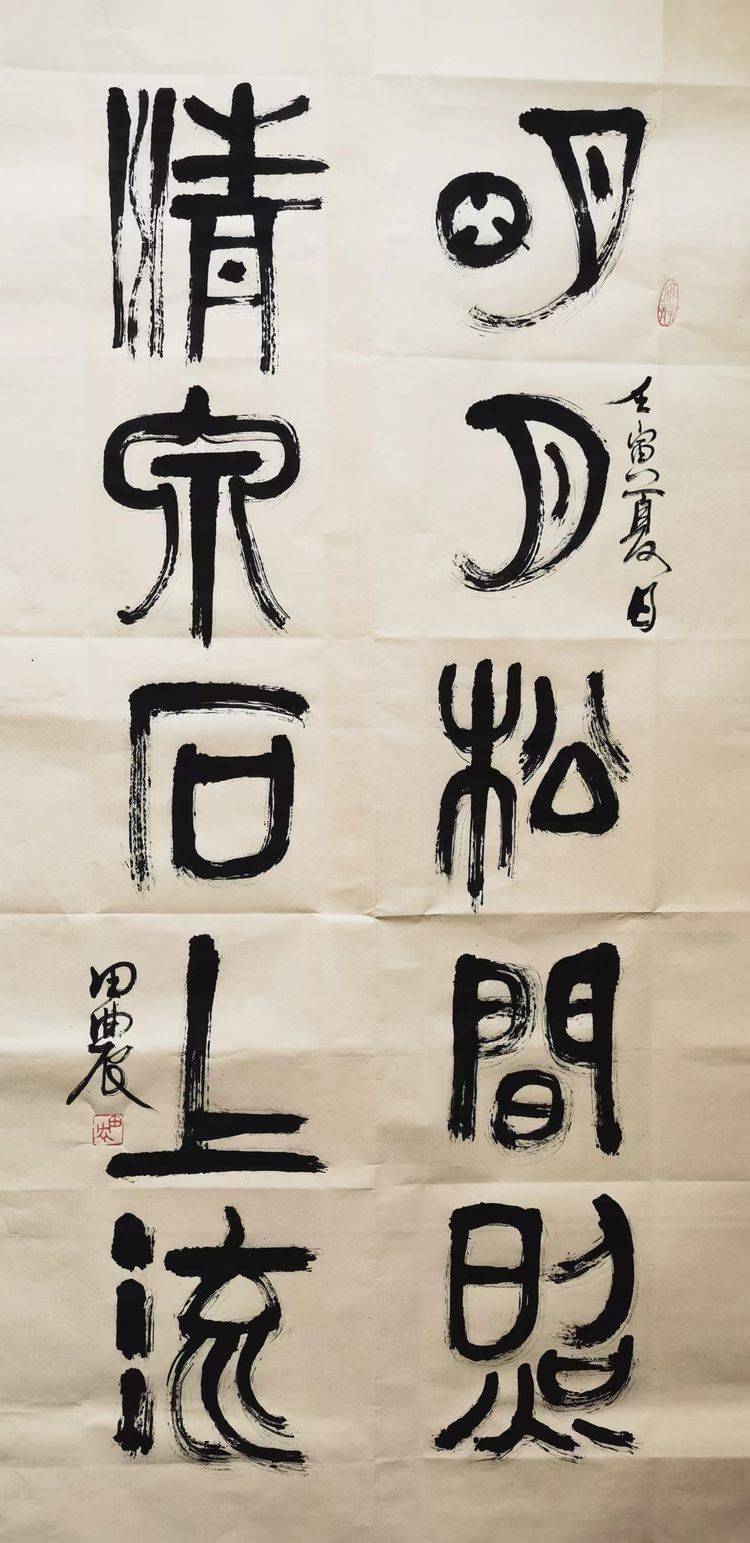 壬寅夏月
明月松間照
清泉石上流
田農